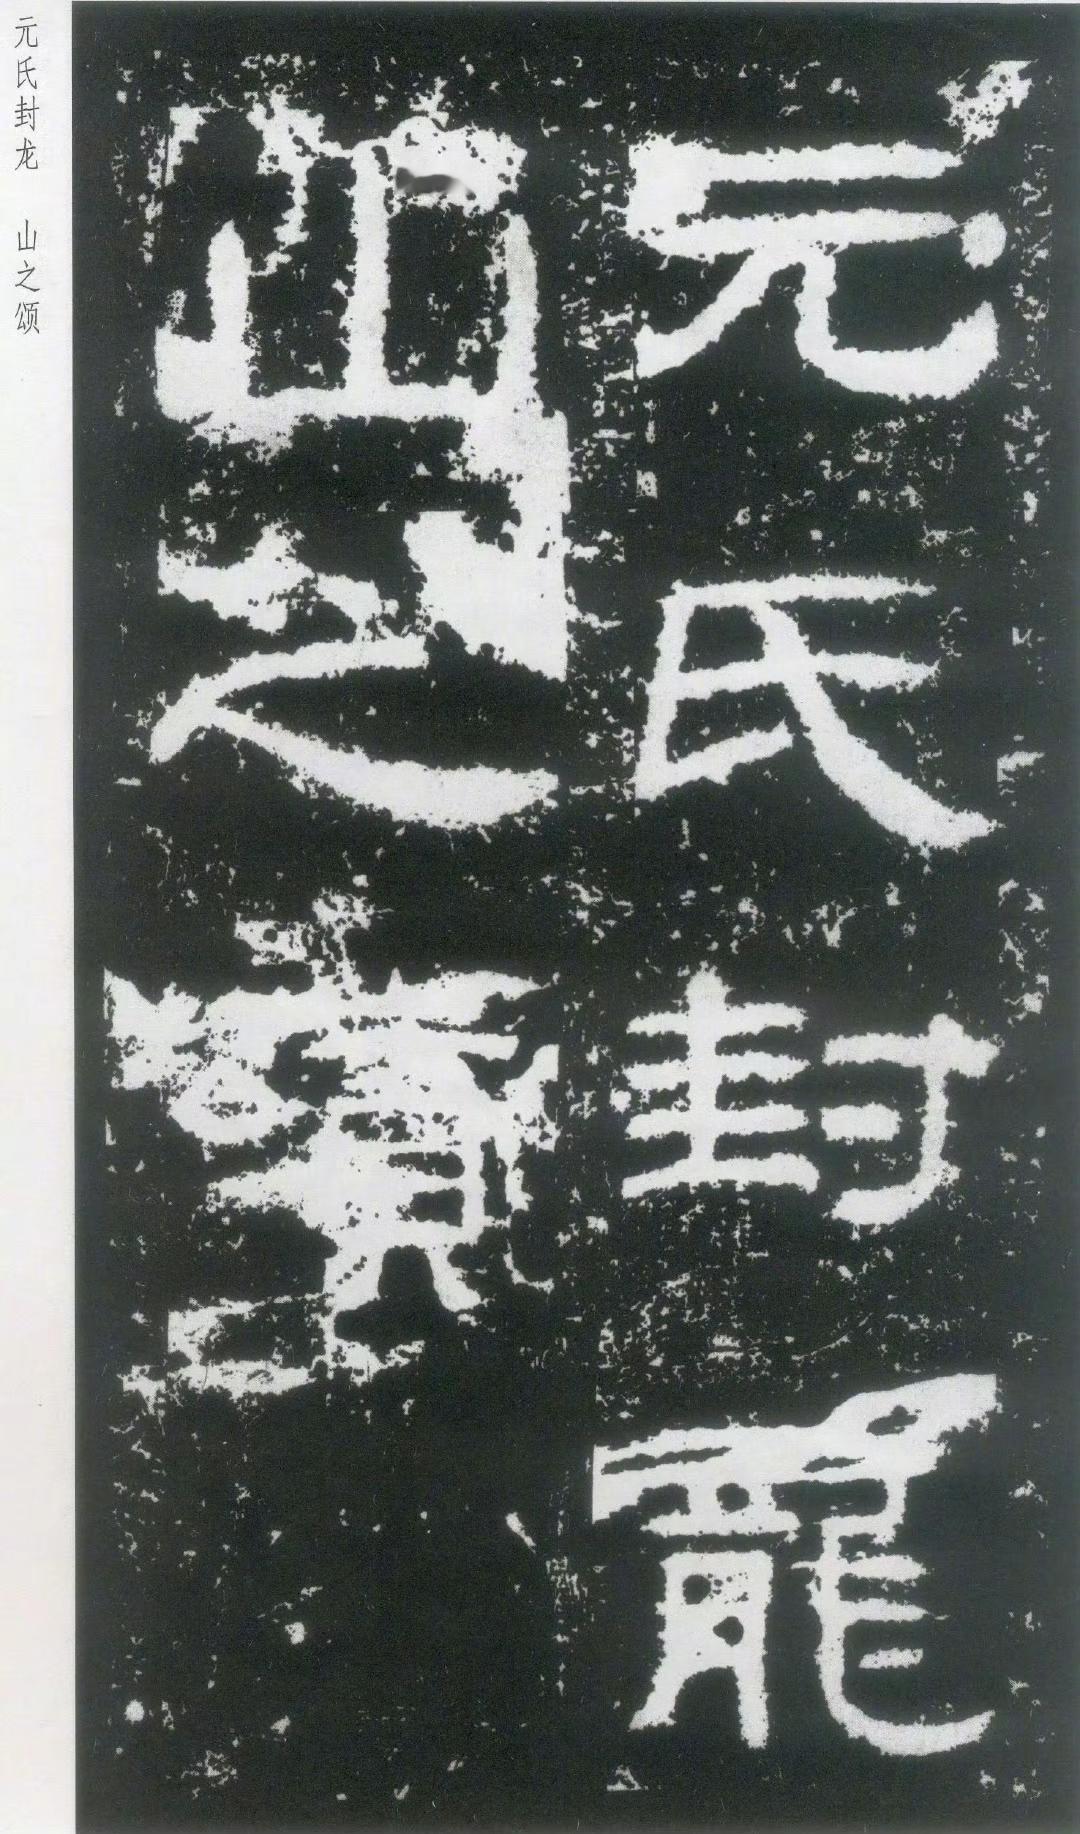 元氏封龍
山之頌
元氏封龙 山之颂